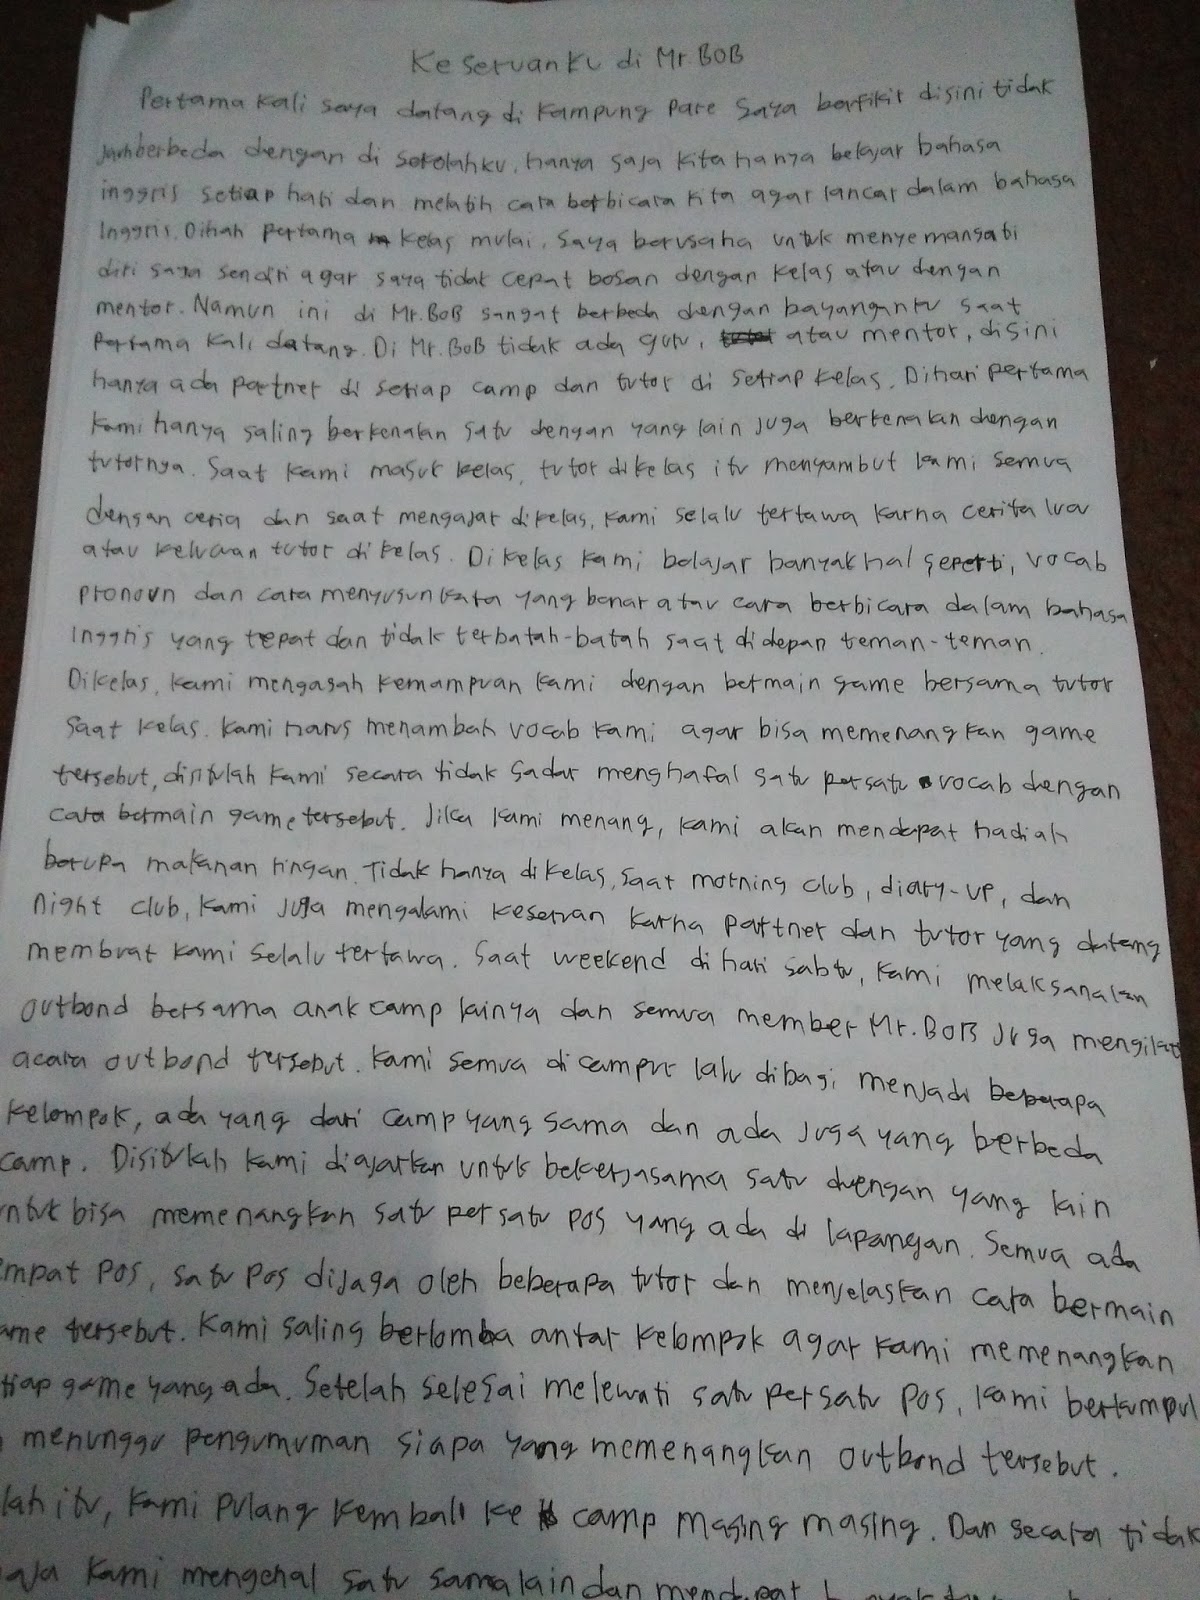 Keseruanku di Mr.BOB
Pertama kali saya datang di kampung pare saya berfikir disini tidak
jauh berbeda dengan di sekolahku, hanya saja kita hanya belajar bahasa
inggris setiap hari dan melatih cara berbicara kita agar lancar dalam bahasa
Inggris. Dihari pertama kelas mulai, saya berusaha untuk menyemangati
diri saya sendiri agar saya tidak cepat bosan dengan kelas atau dengan
mentor. Namun ini di Mr.BOB sangat berbeda dengan bayanganku saat
pertama kali datang. Di Mr.BOB tidak ada guru, atau mentor, disini
hanya ada partner di setiap camp dan tutor di setiap kelas. Dihari pertama
kami hanya saling berkenalan satu dengan yang lain juga berkenalan dengan
tutornya. Saat kami masuk kelas, tutor dikelas itu menyambut kami semua
dengan ceria dan saat mengajar dikelas, kami selalu tertawa karna cerita lucu
atau kelucuan tutor dikelas. Dikelas kami belajar banyak hal seperti, vocab
pronoun dan cara menyusun kata yang benar atau cara berbicara dalam bahasa
Inggris yang tepat dan tidak terbatah-batah saat didepan teman-teman.
Dikelas, kami mengasah kemampuan kami dengan bermain game bersama tutor
saat kelas. kami harus menambah vocab kami agar bisa memenangkan game
tersebut, disitulah kami secara tidak sadar menghafal satu persatu vocab dengan
cara bermain game tersebut. Jika kami menang, kami akan mendapat hadiah
berupa makanan ringan. Tidak hanya dikelas, saat morning club, diary-up, dan
night club, kami juga mengalami keseruan karna partner dan tutor yang datang
membuat kami selalu tertawa. Saat weekend di hari sabtu, kami melaksanakan
outbond bersama anak camp lainya dan semua member Mr.BOB juga mengikuti
acara outbond tersebut. kami semua dicampur lalu dibagi menjadi beberapa
kelompok, ada yang dari camp yang sama dan ada juga yang berbeda
camp. Disitulah kami diajarkan untuk bekerjasama satu dengan yang lain
ntuk bisa memenangkan satu persatu pos yang ada di lapangan. Semua ada
mpat pos, satu pos dijaga oleh beberapa tutor dan menjelaskan cara bermain
ame tersebut. Kami saling berlomba antar kelompok agar kami memenangkan
tiap game yang ada. Setelah selesai melewati satu persatu pos, kami berkumpul
menunggu pengumuman siapa yang memenangkan outbond tersebut.
lah itu, kami pulang kembali ke camp masing masing. Dan secara tidak
aja kami mengenal satu sama lain dan mendapat